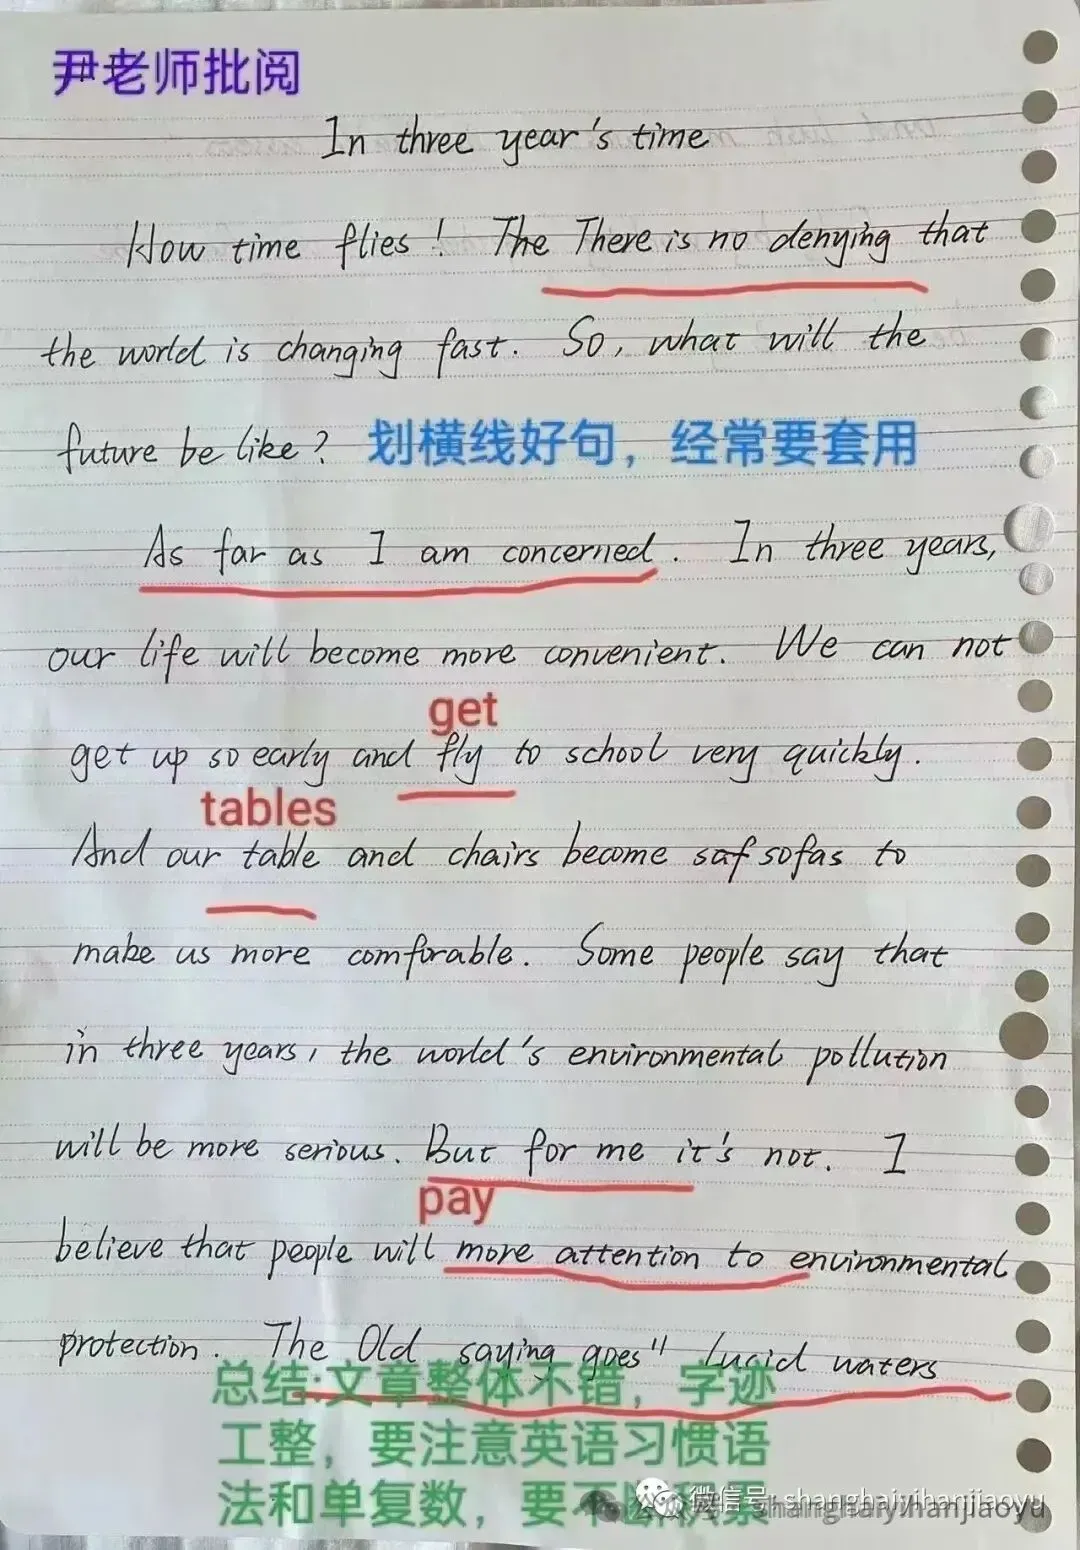 尹老师批阅
In three year's time
How time flies! The There is no denying that
the world is changing fast. So, what will the
future be like? 划横线好句，经常要套用
As far as I am concerned. In three years,
our life will become more convenient. We can not
get
get up so early and fly to school very quickly.
tables
And our table and chairs become saf sofas to
make us more comforable. Some people say that
in three years, the world's environmental pollution
will be more serious. But for me it's not. I
pay
believe that people will more attention to environmental
protection. The Old saying goes" Lucid waters
总结:文章整体不错，字迹
工整，要注意英语习惯语
法和单复数，要不断积累
微信号: shanghaiyihanjiaoyu
shanghaiyihanjiaoyu